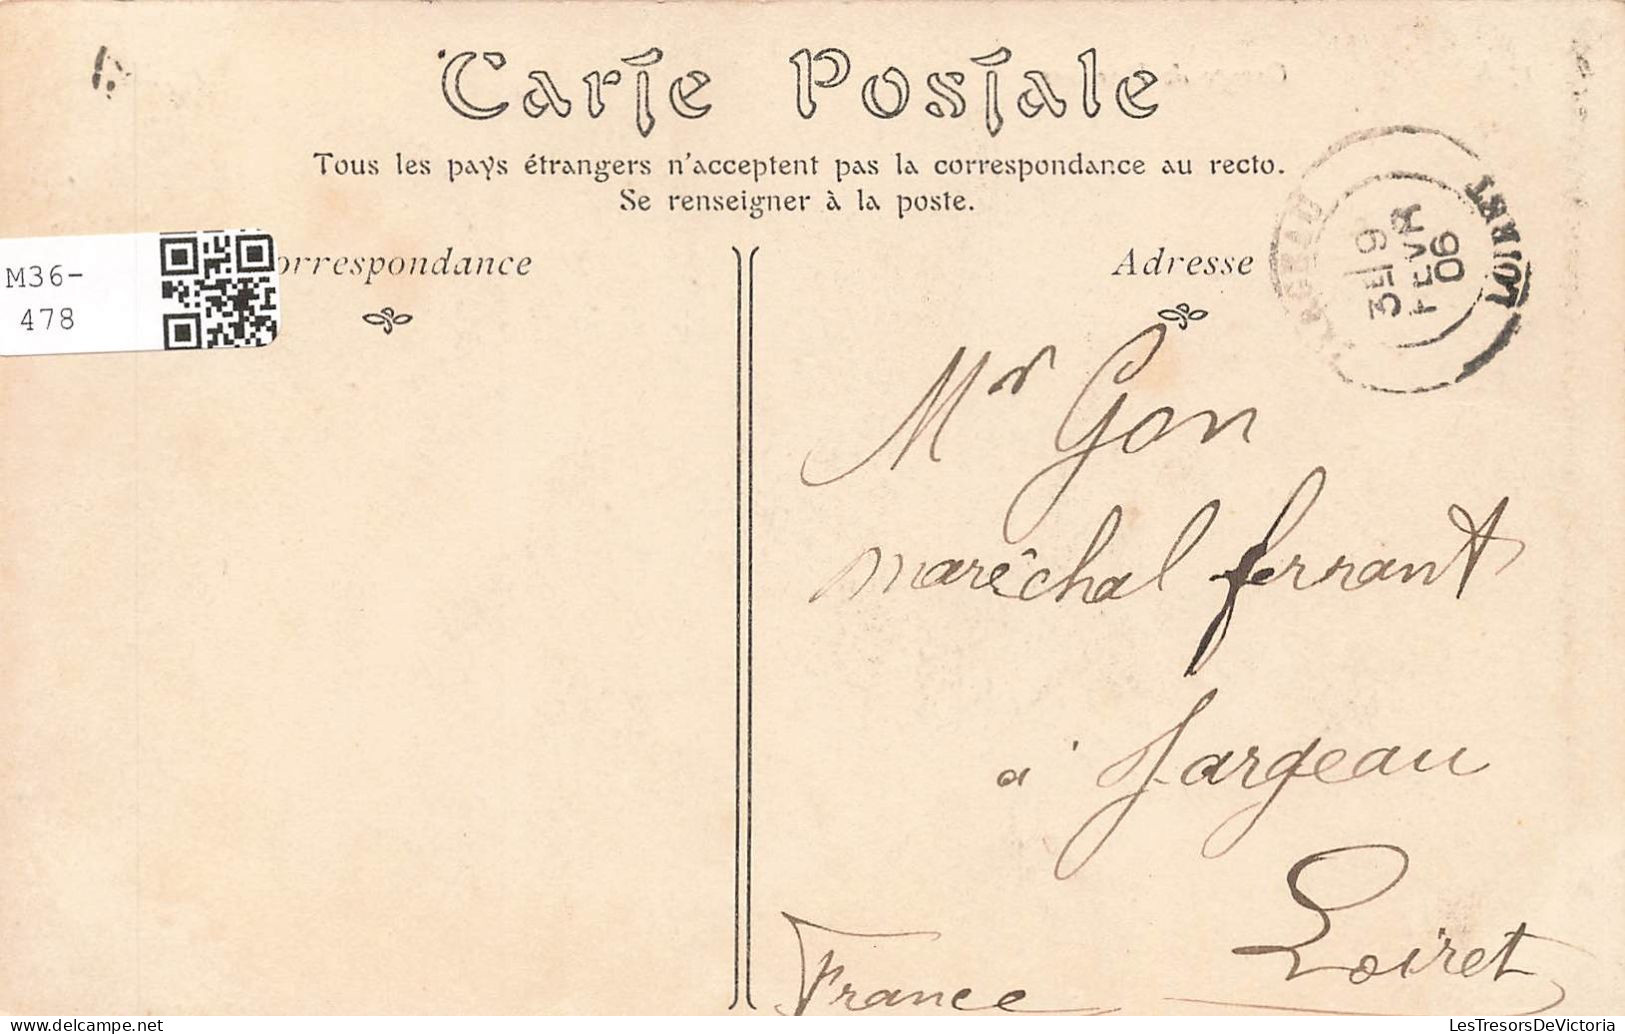 Carte Postale
Tous les pays étrangers n'acceptent pas la correspondance au recto.
Se renseigner à la poste.
M36-
478
orrespondance
Adresse
JARGEAU
LOIRET
3E 9
FEVR
06
Mr Gon
maréchal ferrant
à Jargeau
Loiret
France
LesTresorsDeVictoria